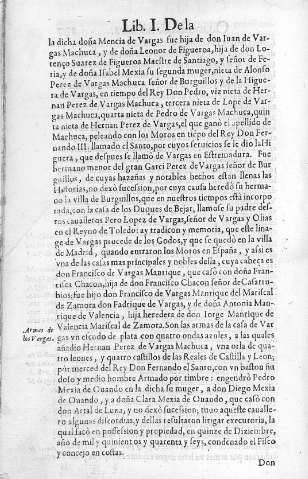 Lib. I. De la
la dicha doña Mencia de Vargas fue hija de don Iuan de Vargas
Machuca, y de doña Leonor de Figueroa, hija de don Lorenço
Suarez de Figueroa Maestre de Santiago, y señor de Feria,
y de doña Isabel Mexia su segunda muger, nieta de Alonso
Perez de Vargas Mochuca señor de Burguillos y de la Higuera
de Vargas, en tiempo del Rey Don Pedro, viz nieta de Hernan
Perez de Vargas Machuca, tercera nieta de Lope de Vargas
Machuca, quarta nieta de Pedro de Vargas Machuca, quinta
nieta de Hernan Perez de Vargas, el que ganò el apellido de
Machuca, peleando con los Moros en tiẽpo del Rey Don Fernando
III. llamado el Santo, por cuyos seruicios se le dio la Higuera,
que despues se llamò de Vargas en Estremadura. Fue
hermano menor del gran Garci Perez de Vargas señor de Burguillos,
de cuyas hazañas y notables hechos estan llenas las
Historias, no dexò sucession, por cuya causa heredò su hermano
la villa de Burguillos, que en nuestros tiempos està incorporada,
con la casa de los Duques de Bejar, llamose su padre destos
caualleros Pero Lopez de Vargas, señor de Vargas y Olias
en el Reyno de Toledo: ay tradicion y memoria, que este linage
de Vargas procede de los Godos, y que se quedò en la villa
de Madrid, quando entraron los Moros en España, y assi es
vna de las casas mas principales y nobles della, cuya cabeça es
don Francisco de Vargas Manrique, que casò con doña Francisca
Chacon, hija de don Francisco Chacon señor de Casarrubios,
fue hijo don Francisco de Vargas Manrique del Mariscal
de Zamora don Fadrique de Vargas, y de doña Antonia Manrique
de Valencia, hija heredera de don Iorge Manrique de
Valencia Mariscal de Zamora. Son las armas de la casa de Vargas
vn escudo de plata con quatro ondas azules, a las quales
añadio Hernan Perez de Vargas Machuca, vna orla de quatro
leones, y quatro castillos de las Reales de Castilla y Leon,
por merced del Rey Don Fernando el Santo, con vn baston
y medio hombre Armado por timbre: engendrò Pedro
Mexia de Ouando en la dicha su muger, a don Diego Mexia
de Ouando, y a doña Clara Mexia de Ouando, que casò con
don Artal de Luna, y no dexò sucession, tuuo aqueste cauallero
algunas discordias, y dellas resultaron luego executoria, la
qual sacò en possession y propiedad, en quinze de Diziembre,
año de mil y quinientos y quarenta y seys, condenado el Fisco
y concejo en costas.
Armas de
los Vargas.
Don